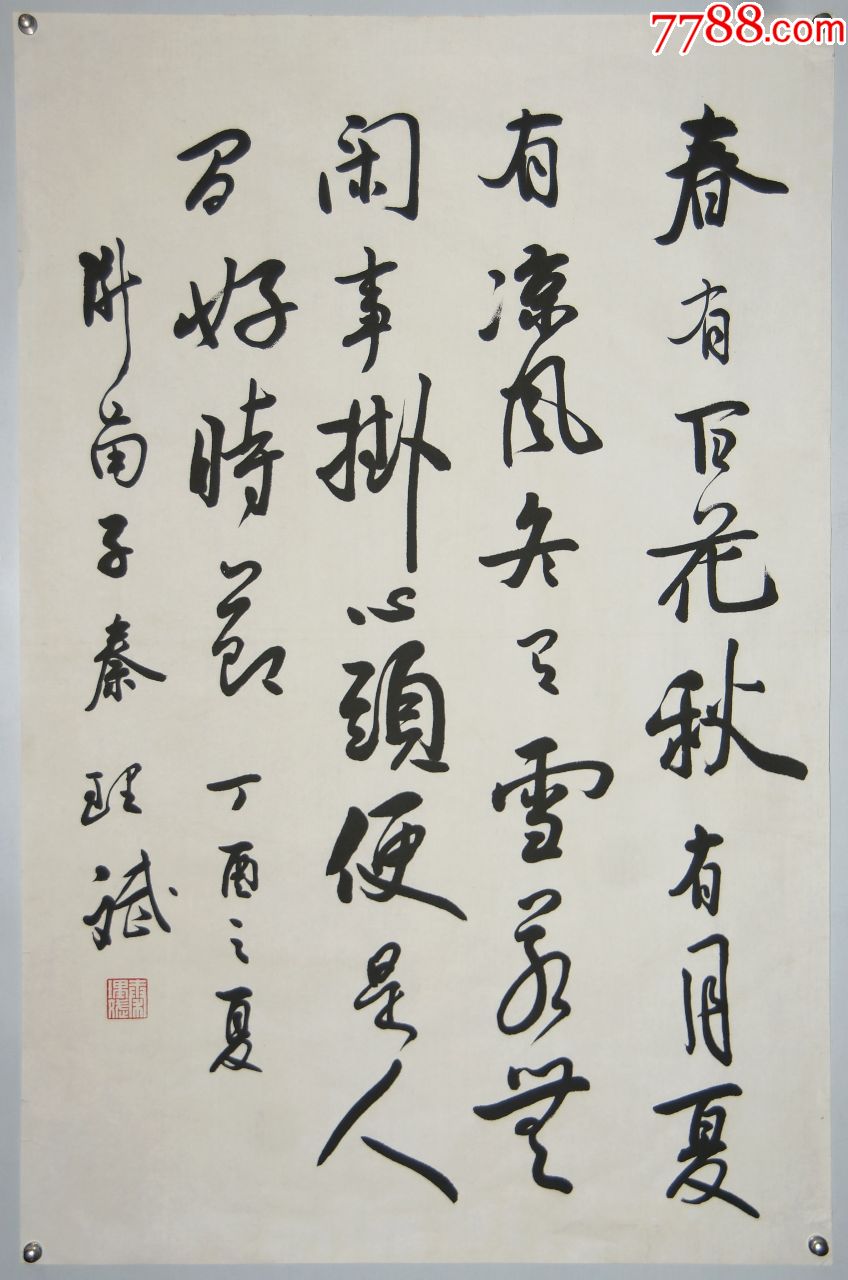 7788.com
春有百花秋有月夏
有凉风冬有雪若無
闲事掛心頭便是人
间好時節 丁酉之夏
斯南子秦理斌